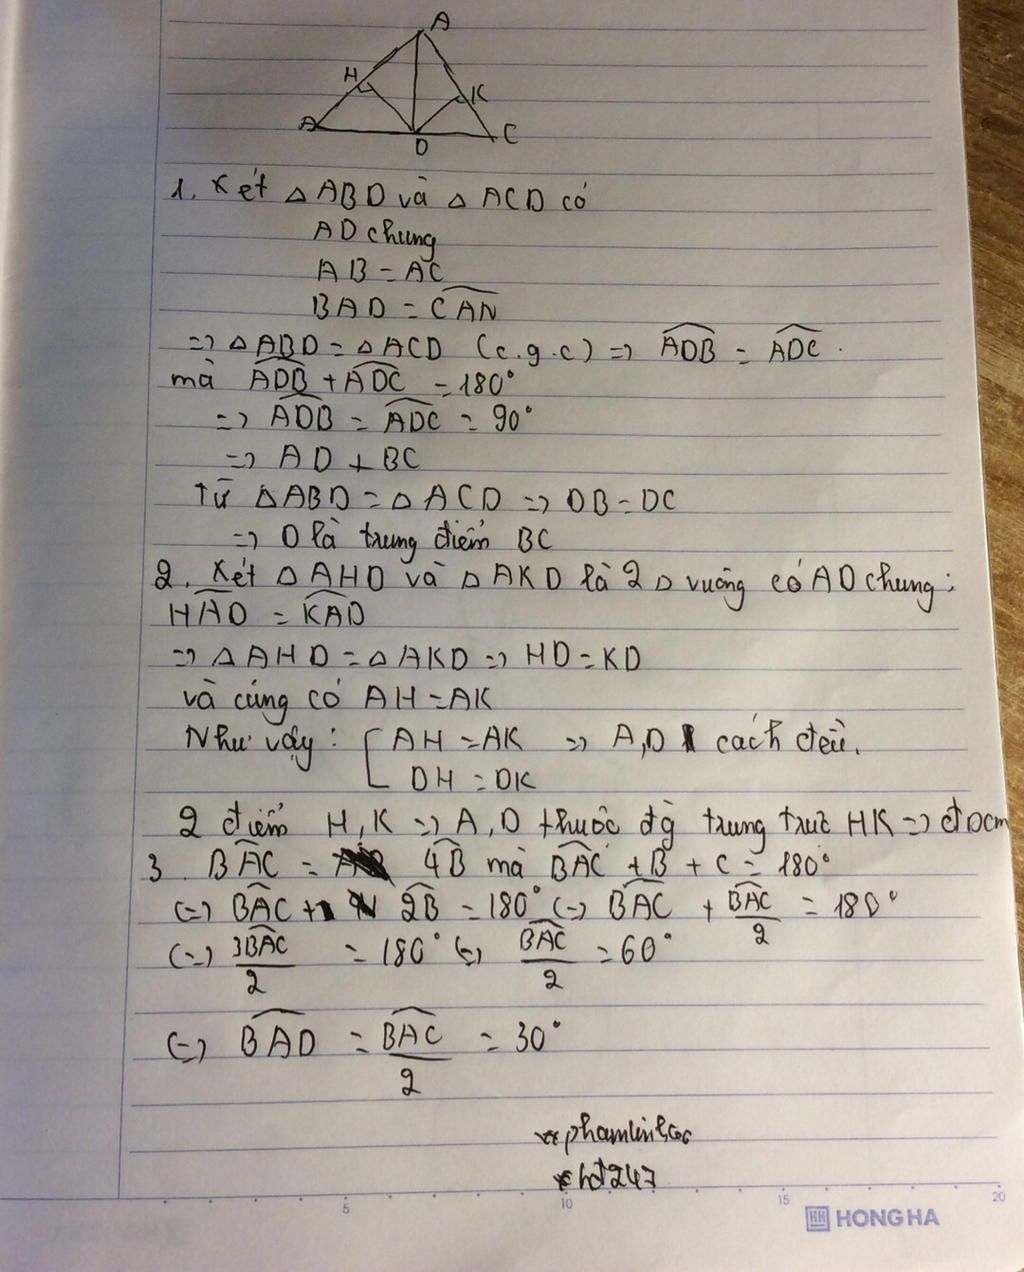 A
H
K
A
D
C
1. Xét △ABD và △ACD có
AD chung
AB = AC
BAD = CAN
=> △ABD = △ACD (c.g.c) => ADB = ADC.
mà ADB + ADC = 180°
=> ADB = ADC = 90°
=> AD ⊥ BC
Từ △ABD = △ACD => DB = DC
=> D là trung điểm BC
2. Xét △AHD và △AKD là 2 △ vuông có AD chung;
HAD = KAD
=> △AHD = △AKD => HD = KD
và cũng có AH = AK
Như vậy: [ AH = AK => A,D cách đều.
DH = DK
2 điểm H, K => A, D thuộc đg trung trực HK => đpcm
3. BAC = 4B mà BAC + B + C = 180°
(=) BAC + 2B = 180° (=) BAC + BAC/2 = 180°
(=) 3BAC/2 = 180° (=) BAC/2 = 60°
(=) BAD = BAC/2 = 30°
hd247
5 10 15 20
HH HONG HA